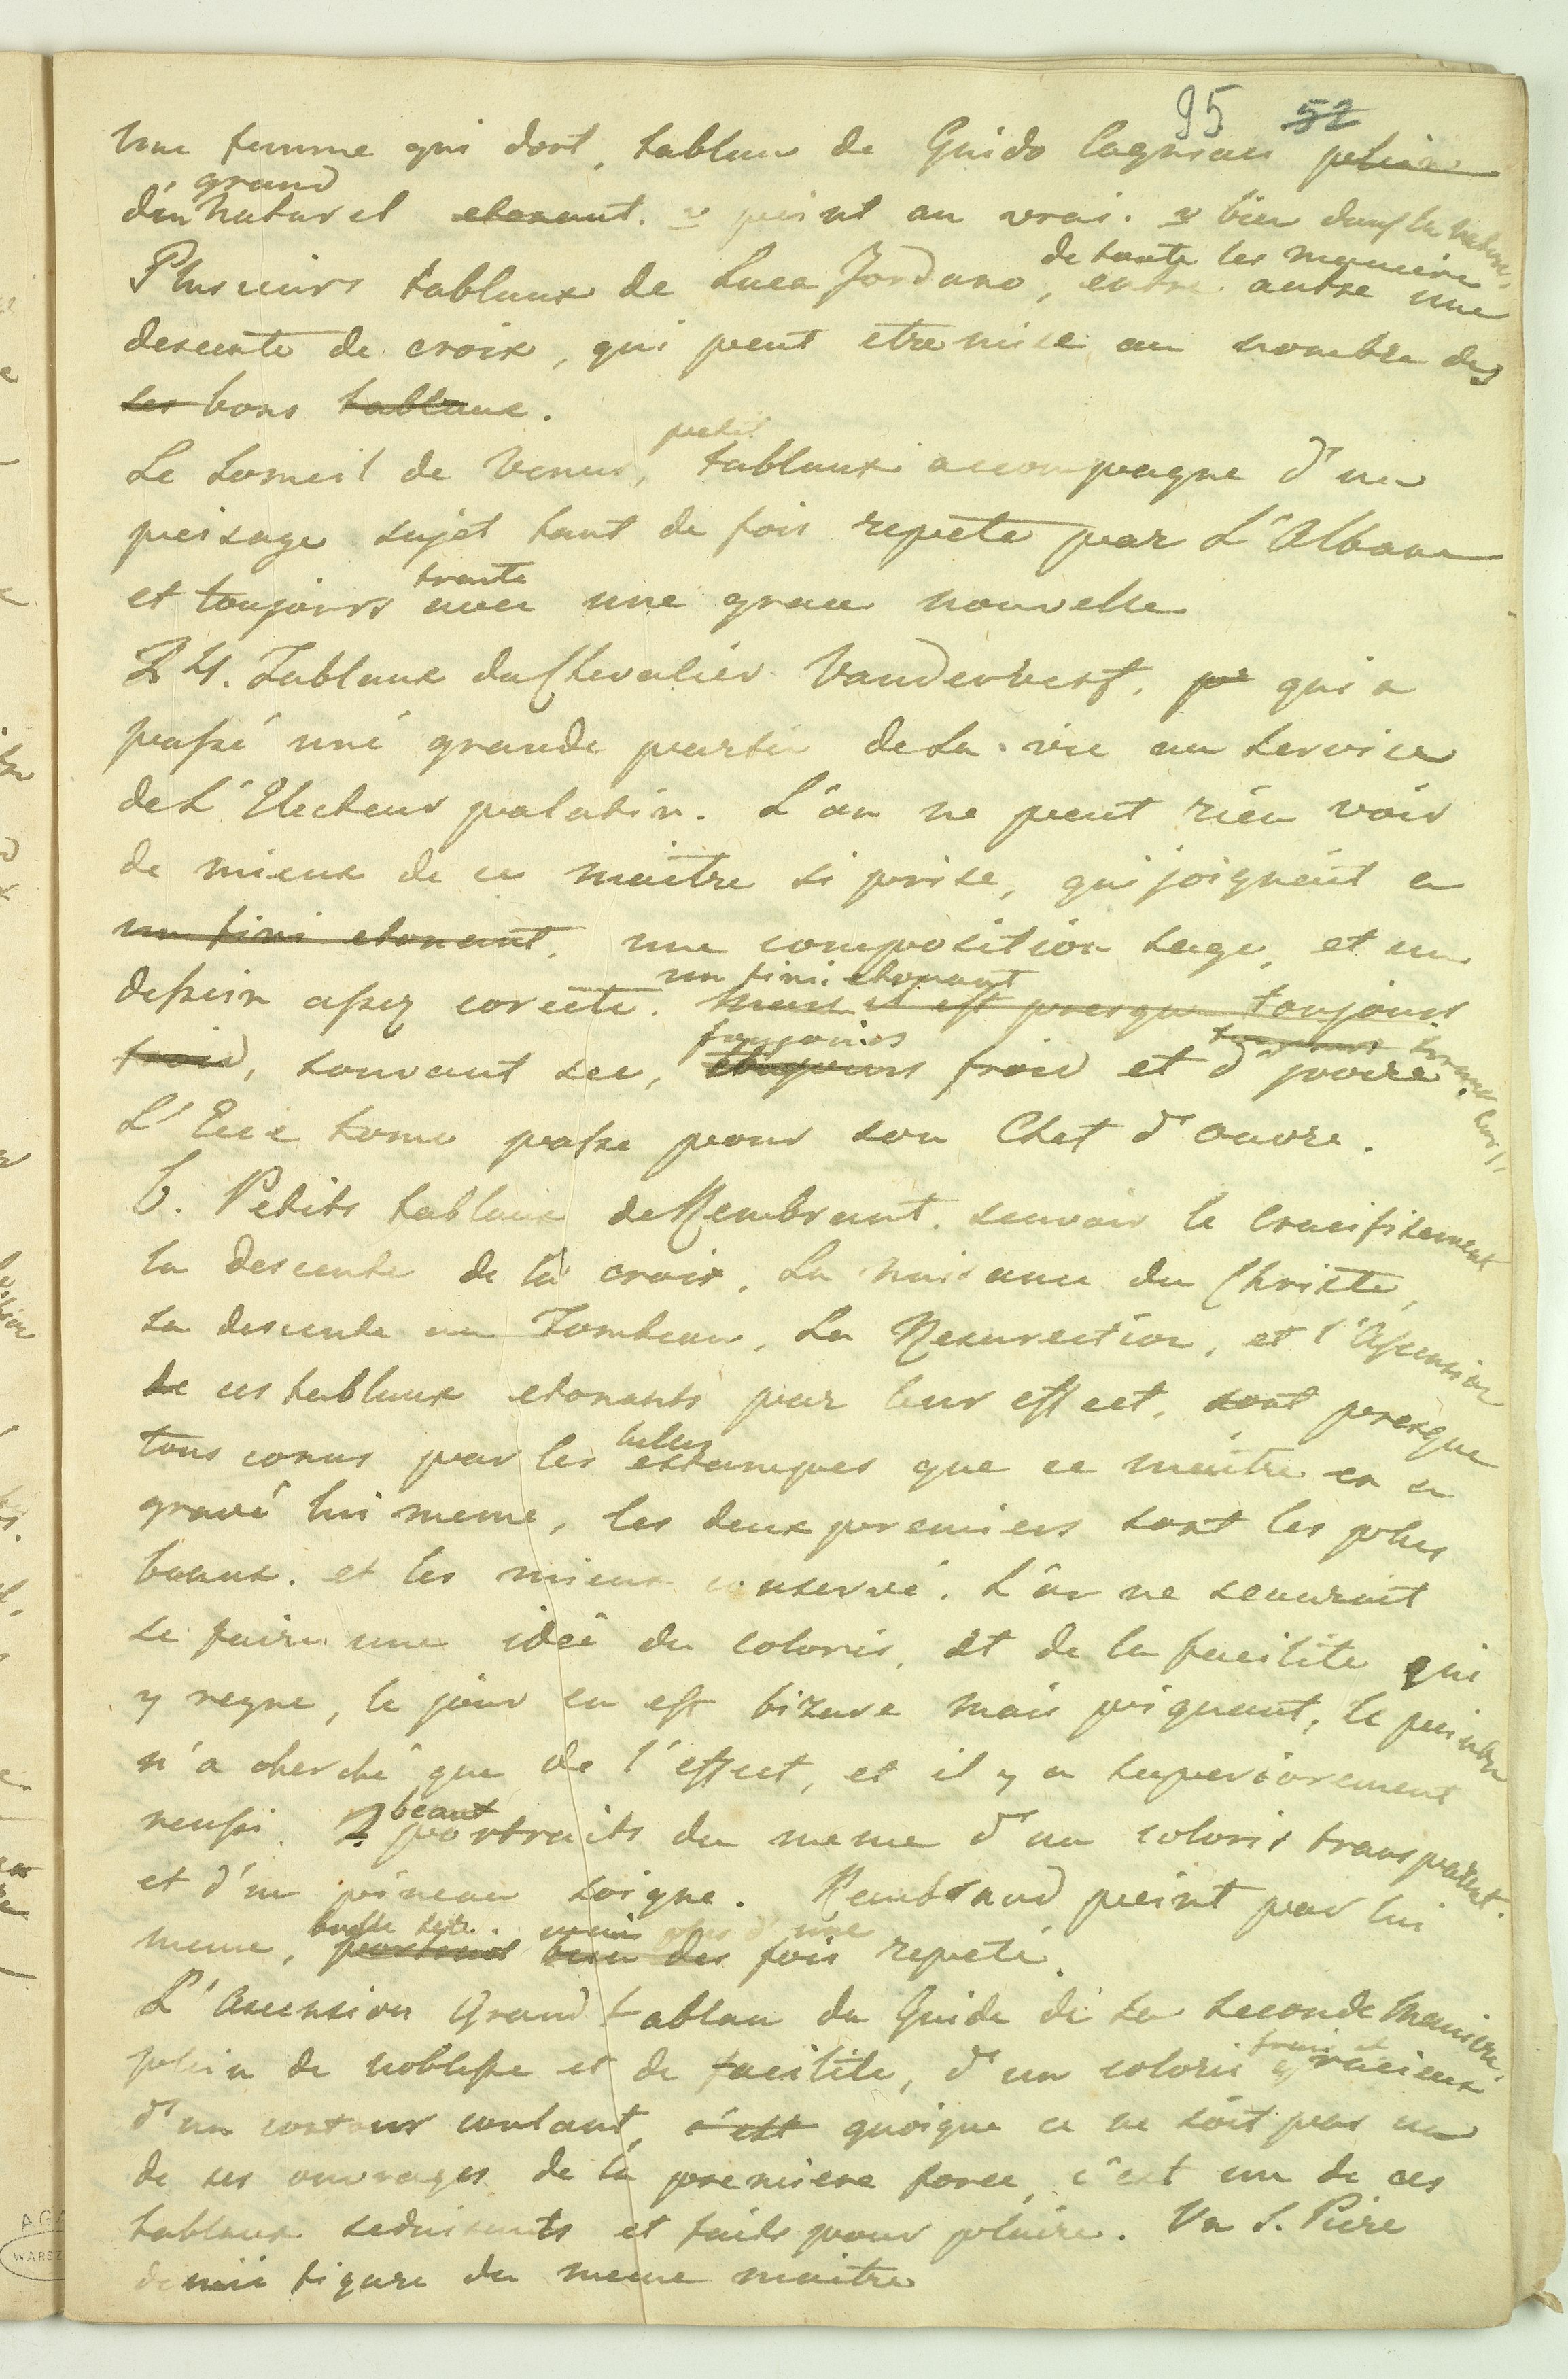 95 52
Une femme qui dort, tablau de Guido Cagniaci plein
grand
d'un naturel etonant. peint au vrai. bien dans la nature.
de toute les maniere
Plusieurs tablaux de Luca Jordano, entre autre une
descente de croix, qui peut etre mise au nombre des
ses bons tablaux.
petit
Le Someil de Venus, tablaux accompagne d'un
peisage sujet tant de fois repete par L'Albane
traite
et toujours avec une grace nouvelle
24. Tablaux du Chevalier Vanderverf. pe qui a
passé une grande partie de sa vie au service
de L'Electeur palatin. L'on ne peut rien voir
de mieux de ce maitre si prise, qui joignent a
un fini etonant, une composition sage, et un
un fini etonant
dessein assez corecte. mais il est presque toujours
toujours
froid, souvant sec, toujours froid et d'ivoire
L'Ecce homo passe pour son Chef d'ouvre.
6. Petits tablaux de Rembrant. scavoir le Crucifisement
la descente de la croix, La naisance du Christe,
sa descente au Tombeau, La Resurection, et l'Ascension
de ces tablaux etonants par leur effect, sont presque
belles
tous conus par les estampes que ce maitre en a
gravé lui meme, les deux premiers sont les plus
beaux. et les mieux conservé. L'on ne scauroit
se faire une ideé du coloris, et de la facilite qui
y regne, le jour en est bizare mais piquant, le peintre
n'a cherché que de l'effect, et il y a superiorement
beaux
reussi. 2 portraits du meme d'un coloris transparent.
et d'un pineau soigne. Rembrand peint par lui
buste sete. mais plus d'une
meme, portrait bien des fois repeté.
L'Ascension Grand tablau du Guide de sa seconde maniere,
frais et
plein de noblesse et de facilite, d'un coloris gracieux
d'un contour coulant, c'est quoique ce ne soit pas un
de ses ouvrages de la premiere force, c'est un de ces
tablaux seduisants et faits pour plaire. Un S. Piere
demie figure du meme maitre